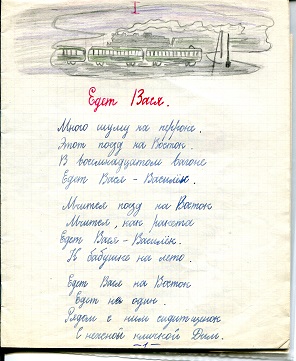 I
Едет Вася.
Много шуму на перроне.
Этот поезд на Восток.
В восемнадцатом вагоне
Едет Вася - Василёк.
Мчится поезд на Восток
Мчится, как ракета
Едет Вася - Василёк.
К бабушке на лето.
Едет Вася на Восток
Едет не один.
Рядом с ним сидит щенок
С нежной кличкой Дым.
-1-